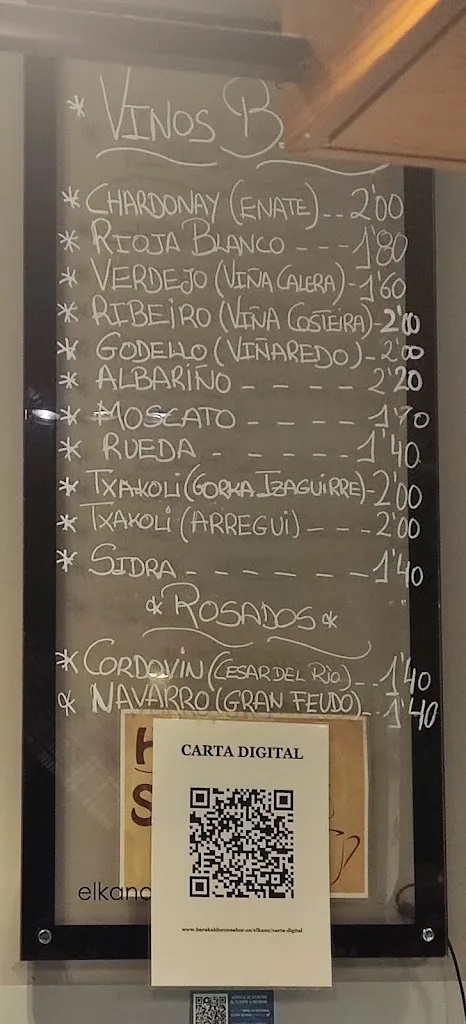 * VINOS B
* CHARDONAY (ENATE)--2'00
* RIOJA BLANCO ---1'80
* VERDEJO (VIÑA CALERA)-1'60
* RIBEIRO (VIÑA COSTEIRA)-2'00
* GODELLO (VIÑAREDO)--2'00
* ALBARIÑO ----2'20
* MOSCATO ----1'70
* RUEDA ----1'40
* TXAKOLI (GORKA IZAGUIRRE)-2'00
* TXAKOLI (ARREGUI)---2'00
* SIDRA ------1'40
* ROSADOS *
* CORDOVIN (CESAR DEL RIO)--1'40
* NAVARRO (GRAN FEUDO)--1'40
CARTA DIGITAL
elkano
www.barakaldoconsabor.es/elkano/carta-digital